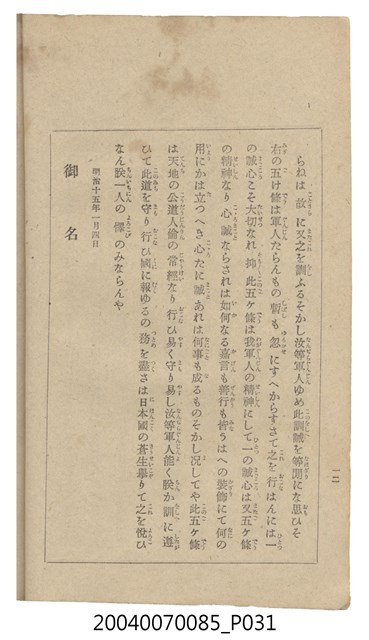 らねは故に又之を訓ふるそかし汝等軍人ゆめ此訓誡を等閒にな思ひそ
右の五ケ條は軍人たらんもの暫も忽にすへからすさて之を行はんには一
の誠心こそ大切なれ抑此五ケ條は我軍人の精神にして一の誠心は又五ケ條
の精神なり心誠ならされは如何なる嘉言も善行も皆うはへの裝飾にて何の
用にかは立つへき心たに誠あれは何事も成るものそかし况してや此五ケ條
は天地の公道人倫の常經なり行ひ易く守り易し汝等軍人能く朕か訓に遵
ひて此道を守り行ひ國に報ゆるの務を盡さは日本國の蒼生擧りて之を悅ひ
なん朕一人の懌のみならんや
明治十五年一月四日
御名
一二
20040070085_P031